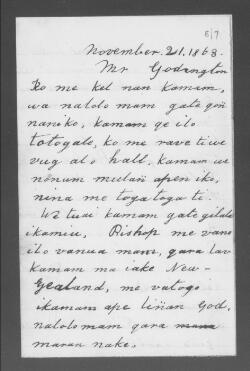 8/7
November 21. 1868.
Mr Godrington
Ko me kel nan kamam,
wa nalolo mam gate goñ
naniko, kamam ge ilo
totogale, ko me rave tiwe
vug alo hall. kamam we
nonum mulañ apen iko,
nina me togatoga ti.
Wa tuai kamam gate gilala
ikamiu. Bishop me vano
ilo vanua mam, gara lav
kamam ma iake New-
Zealand, me vatogo
ikamam ape liñan God,
nalolomam gara
maran nake.